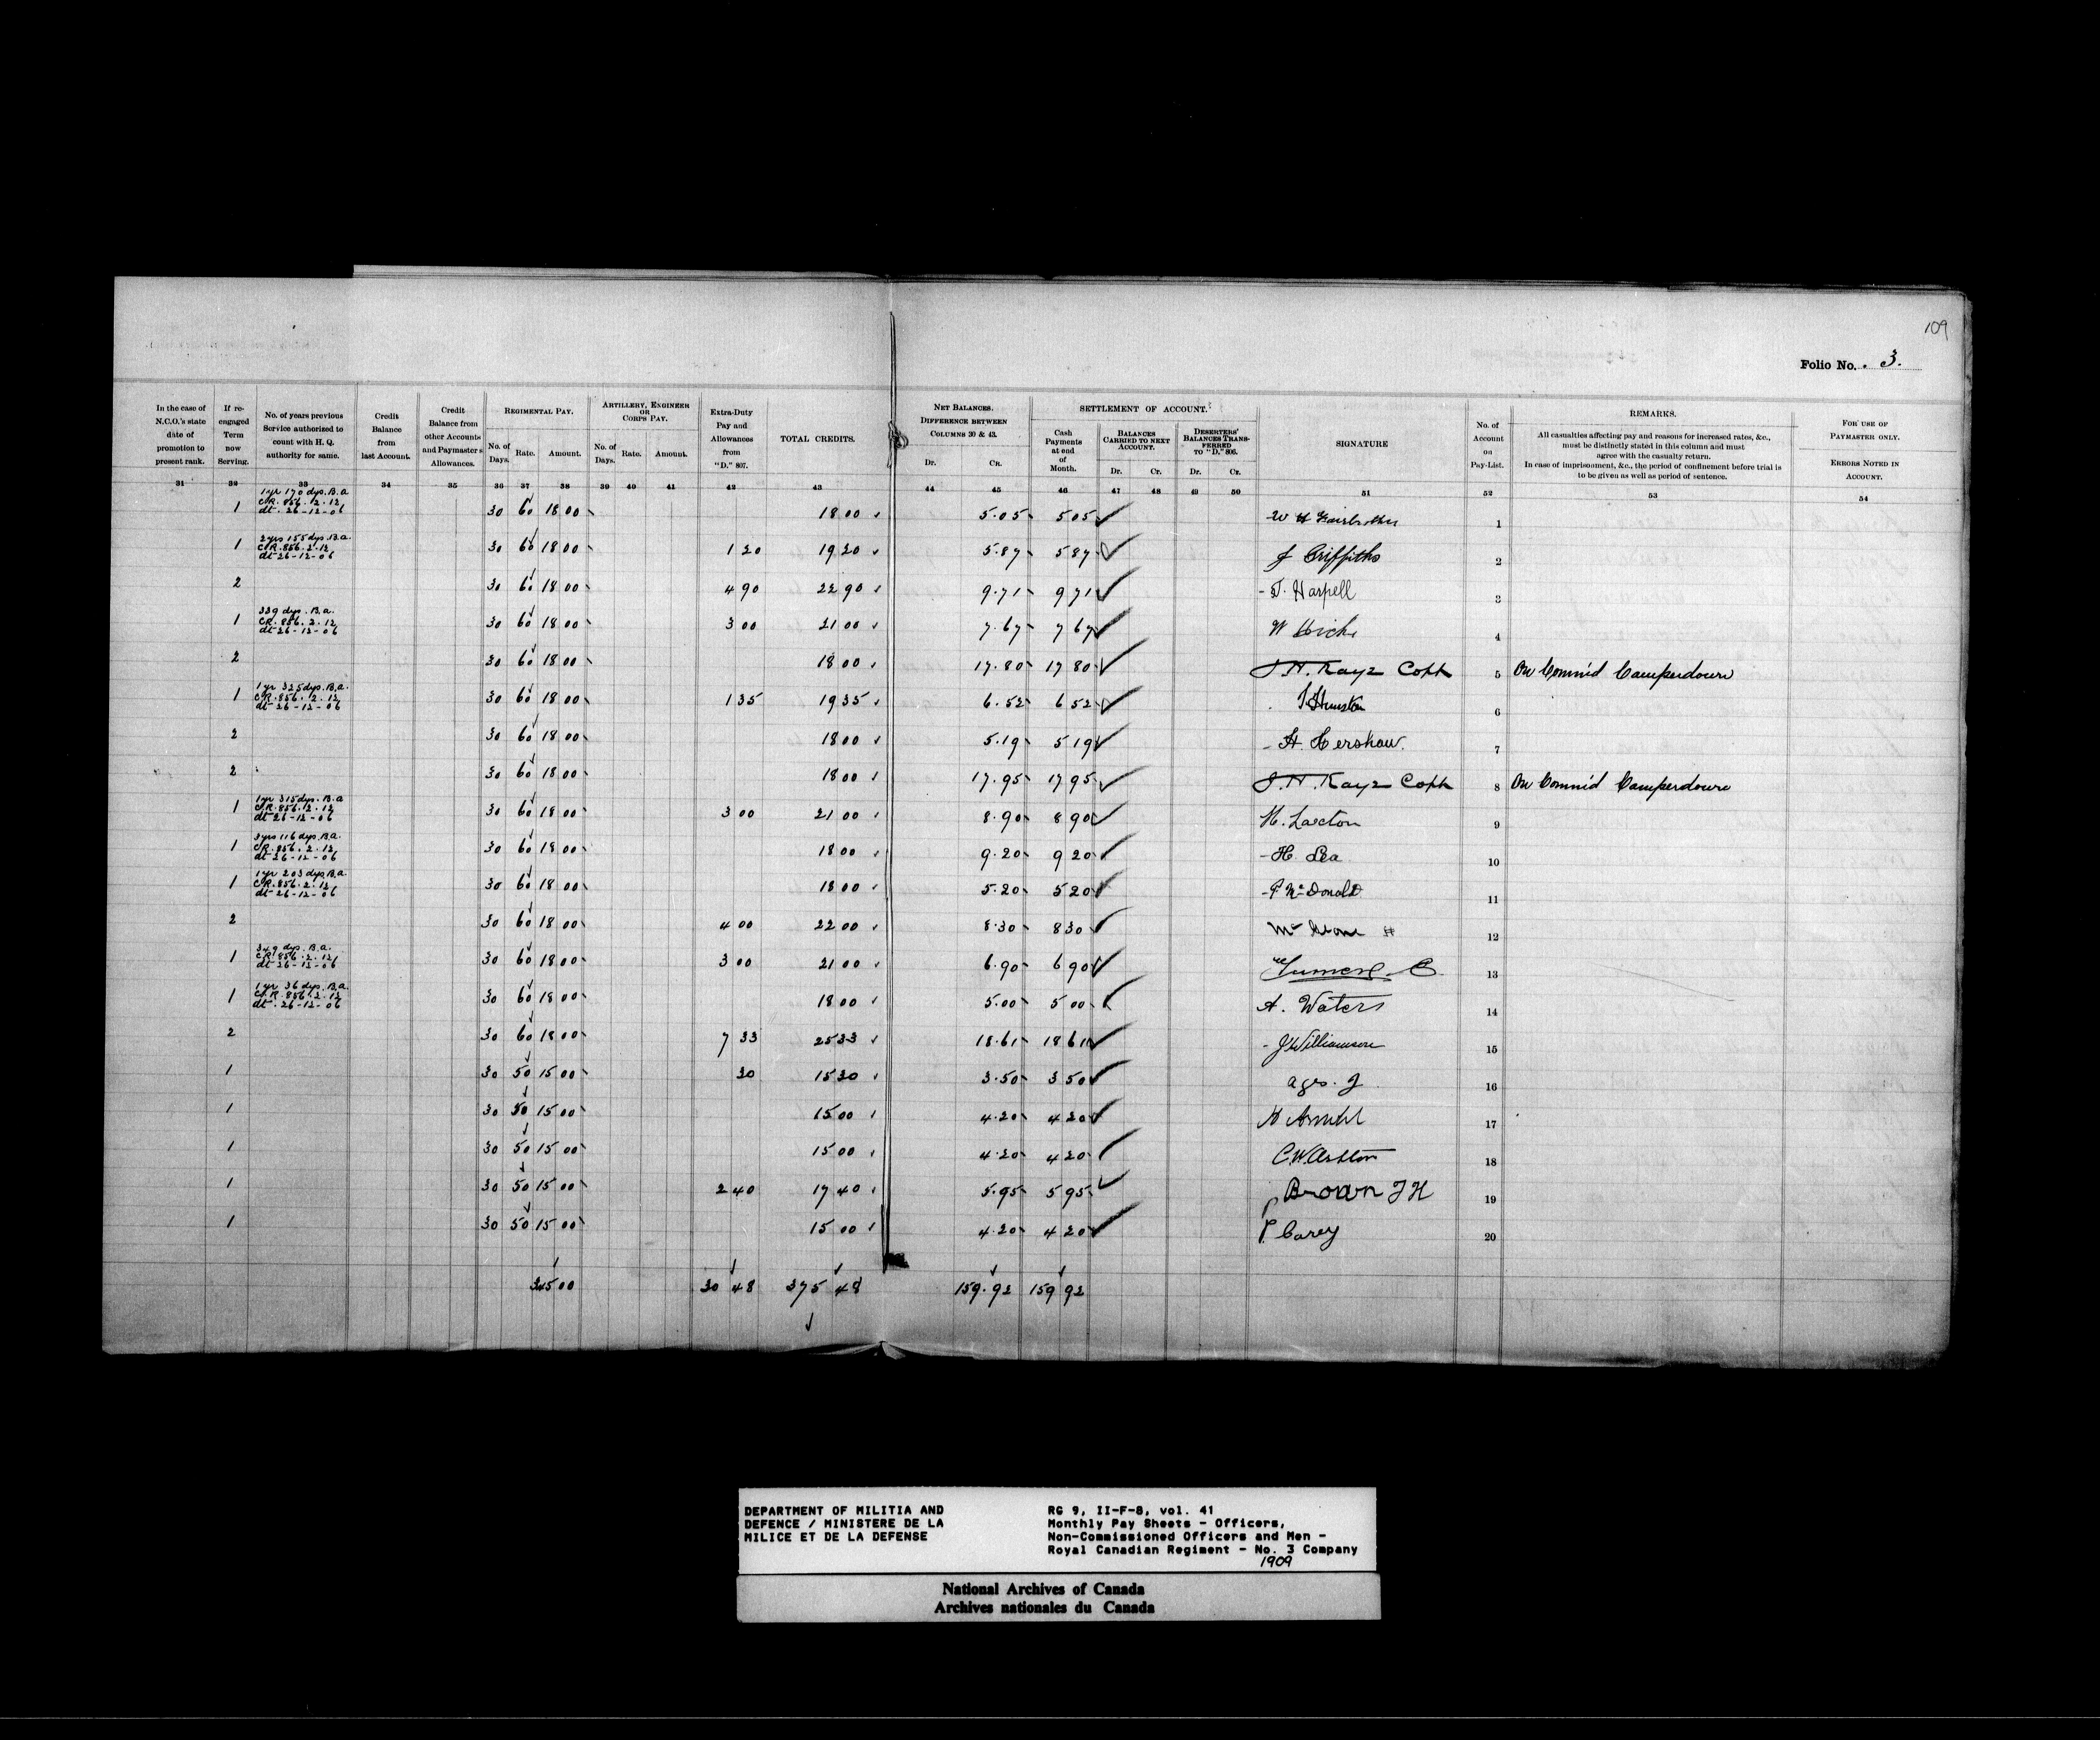 109
Folio No. 3.
In the case of N.C.O.'s state date of promotion to present rank.
If re-engaged Term now Serving.
No. of years previous Service authorized to count with H. Q. authority for same.
Credit Balance from last Account.
Credit Balance from other Accounts and Paymaster's Allowances.
REGIMENTAL PAY.
No. of Days. Rate. Amount.
ARTILLERY, ENGINEER OR CORPS PAY.
No. of Days. Rate. Amount.
Extra-Duty Pay and Allowances from "D." 807.
TOTAL CREDITS.
NET BALANCES. DIFFERENCE BETWEEN COLUMNS 30 & 43.
Dr. Cr.
SETTLEMENT OF ACCOUNT.
Cash Payments at end of Month.
BALANCES CARRIED TO NEXT ACCOUNT.
Dr. Cr.
DESERTERS' BALANCES TRANSFERRED TO "D." 806.
Dr. Cr.
SIGNATURE
No. of Account on Pay-List.
REMARKS.
All casualties affecting pay and reasons for increased rates, &c., must be distinctly stated in this column and must agree with the casualty return.
In case of imprisonment, &c., the period of confinement before trial is to be given as well as period of sentence.
FOR USE OF PAYMASTER ONLY.
ERRORS NOTED IN ACCOUNT.
31 32 33 34 35 36 37 38 39 40 41 42 43 44 45 46 47 48 49 50 51 52 53 54
1 1 yr 170 dys. B.a C.R. 856.2.12 dt. 26-12-06 30 60 18 00 18 00 5.05 5 05 1
1 2 yrs 155 dys. B.a. C.R. 856.2.12 dt 26-12-06 30 60 18 00 1 20 19 20 5.87 5 87 J Griffiths 2
2 30 60 18 00 4 90 22 90 9.71 9 71 T. Harpell 3
1 339 dys. B.a. C.R. 856.2.12 dt 26-12-06 30 60 18 00 3 00 21 00 7.67 7 67 W Hicks 4
2 30 60 18 00 18 00 17.80 17 80 J.H. Kaye Capt 5 On Comm'd Camperdown
1 1 yr 325 dys. B.a. C.R. 856.2.12 dt 26-12-06 30 60 18 00 1 35 19 35 6.52 6 52 6
2 30 60 18 00 18 00 5.19 5 19 H. Kershaw. 7
2 30 60 18 00 18 00 17.95 17 95 J.H. Kaye Capt 8 On Comm'd Camperdown
1 1 yr 315 dys. B.a C.R. 856.2.12 dt 26-12-06 30 60 18 00 3 00 21 00 8.90 8 90 H. Laxton 9
1 3 yrs 116 dys. B.a. C.R. 856.2.12 dt 26-12-06 30 60 18 00 18 00 9.20 9 20 H. Lea 10
1 1 yr 203 dys B.a C.R. 856.2.12 dt 26-12-06 30 60 18 00 18 00 5.20 5 20 P McDonald 11
2 30 60 18 00 4 00 22 00 8.30 8 30 12
1 349 dys. B.a. C.R. 856.2.12 dt 26-12-06 30 60 18 00 3 00 21 00 6.90 6 90 13
1 1 yr 36 dys. B.a. C.R. 856.2.12 dt. 26-12-06 30 60 18 00 18 00 5.00 5 00 A. Waters 14
2 30 60 18 00 7 33 25 33 18.61 18 61 J Williamson 15
1 30 50 15 00 30 15 30 3.50 3 50 16
1 30 50 15 00 15 00 4.20 4 20 17
1 30 50 15 00 15 00 4.20 4 20 C.W. Ashton 18
1 30 50 15 00 2 40 17 40 5.95 5 95 Brown J H 19
1 30 50 15 00 15 00 4.20 4 20 P. Carey 20
345 00 30 48 375 48 159.92 159 92
DEPARTMENT OF MILITIA AND
DEFENCE / MINISTERE DE LA
MILICE ET DE LA DEFENSE
RG 9, II-F-8, vol. 41
Monthly Pay Sheets - Officers,
Non-Commissioned Officers and Men -
Royal Canadian Regiment - No. 3 Company
1909
National Archives of Canada
Archives nationales du Canada